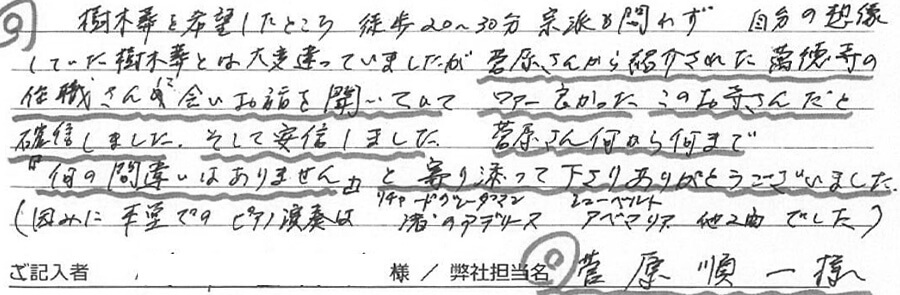 樹木葬を希望したところ 徒歩20〜30分 宗派も問わず 自分の想像
していた樹木葬とは大変違っていましたが 菅原さんから紹介された 萬徳寺の
住職さんに会いお話を聞いてみて ワァー良かった このお寺さんだと
確信しました。そして安信しました。 菅原さん何から何まで
『何の間違いはありません』と 寄り添って下さりありがとうございました。
(因みに 本堂でのピアノ演奏は リチャードクレーダマン 渚のアデリーヌ シューベルト アベマリア 他2曲でした)
ご記入者 様 / 弊社担当名 菅原順一様